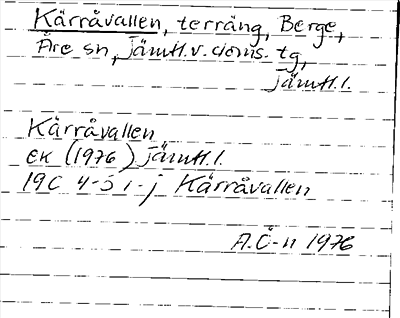 Kärråvallen, terräng, Berge,
Åre sn, jämtl. v. doms. tg,
jämtl. l.
Kärråvallen
EK (1976) jämtl. l.
19C 4-5 i-j Kärråvallen
A.Ö-n 1976